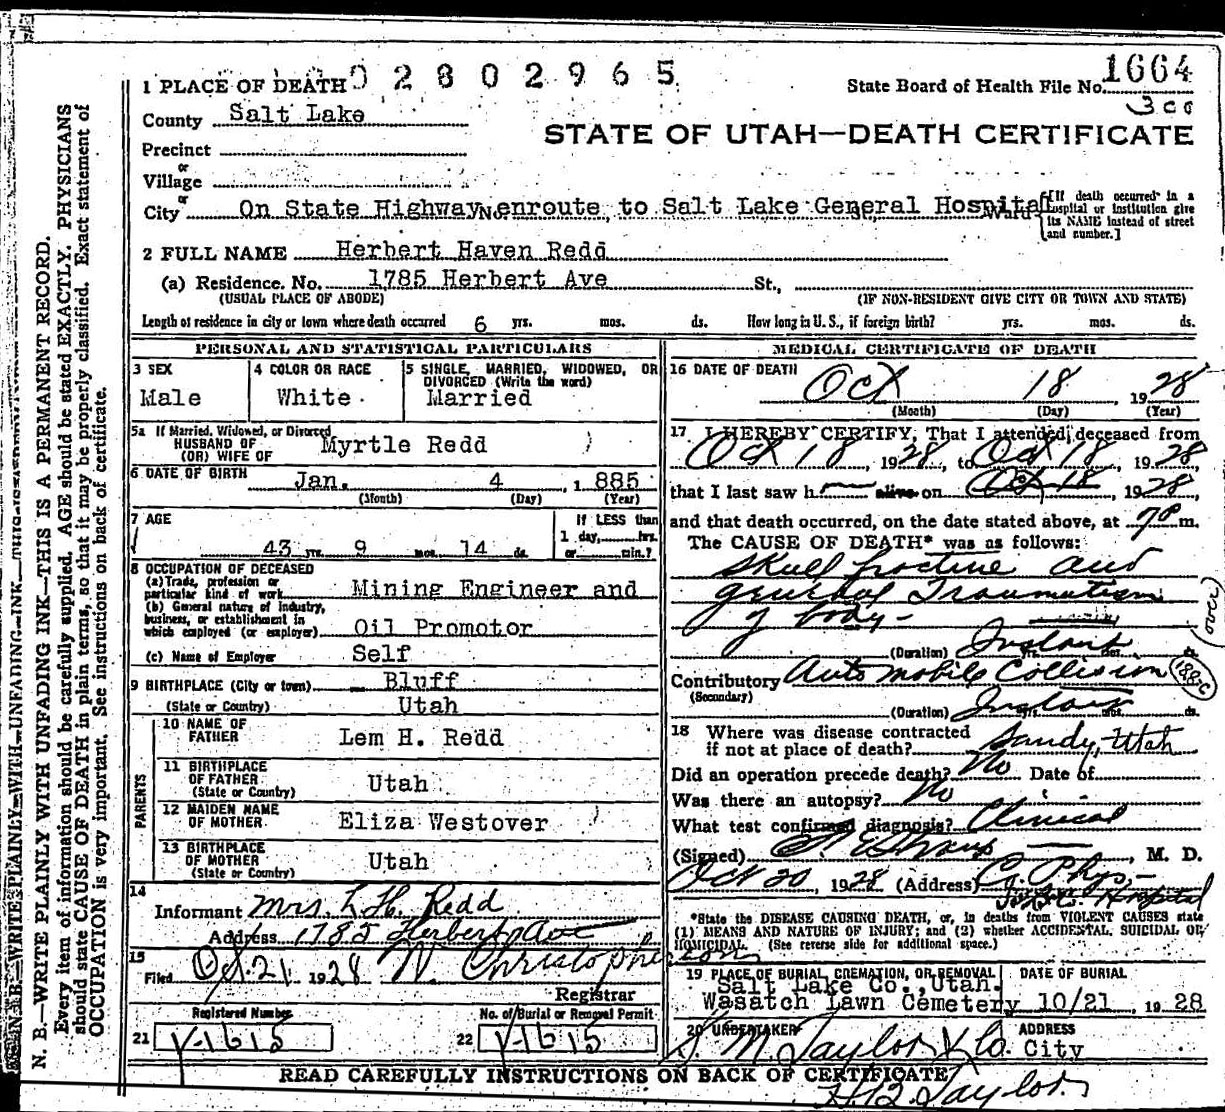 02802965
1664
1 PLACE OF DEATH
State Board of Health File No.
300
County Salt Lake
STATE OF UTAH—DEATH CERTIFICATE
Precinct
or
Village
or
City On State Highway No. enroute to Salt Lake General Hospital
[If death occurred in a hospital or institution give its NAME instead of street and number.]
2 FULL NAME Herbert Haven Redd
(a) Residence. No. 1785 Herbert Ave St.,
(USUAL PLACE OF ABODE) (IF NON-RESIDENT GIVE CITY OR TOWN AND STATE)
Length of residence in city or town where death occurred 6 yrs. mos. ds. How long in U. S., if foreign birth? yrs. mos. ds.
PERSONAL AND STATISTICAL PARTICULARS
3 SEX
Male
4 COLOR OR RACE
White
5 SINGLE, MARRIED, WIDOWED, OR
DIVORCED (Write the word)
Married
5a If Married, Widowed, or Divorced
HUSBAND OF
(OR) WIFE OF
Myrtle Redd
6 DATE OF BIRTH Jan. 4, 1885
(Month) (Day) (Year)
7 AGE
43 yrs. 9 mos. 14 ds.
If LESS than
1 day, hrs.
or min.?
8 OCCUPATION OF DECEASED
(a) Trade, profession or
particular kind of work Mining Engineer and
(b) General nature of industry,
business, or establishment in
which employed (or employer) Oil Promotor
(c) Name of Employer Self
9 BIRTHPLACE (City or town) Bluff
(State or Country) Utah
PARENTS
10 NAME OF
FATHER Lem H. Redd
11 BIRTHPLACE
OF FATHER
(State or Country) Utah
12 MAIDEN NAME
OF MOTHER Eliza Westover
13 BIRTHPLACE
OF MOTHER
(State or Country) Utah
14
Informant Mrs. L H. Redd
Address 1785 Herbert Ave
15
Filed Oct. 21 1928 N. Christopherson
Registrar
Registered Number
21 V-1615
No. of Burial or Removal Permit
22 V-1615
MEDICAL CERTIFICATE OF DEATH
16 DATE OF DEATH
Oct 18 1928
(Month) (Day) (Year)
17 I HEREBY CERTIFY, That I attended deceased from
Oct 18, 1928, to Oct 18, 1928
that I last saw h alive on Oct 18, 1928,
and that death occurred, on the date stated above, at 7 P m.
The CAUSE OF DEATH* was as follows:
Skull fracture and
general Traumatism
of body-
(over)
(Duration) Instant
Contributory Automobile Collision
(Secondary)
188-c
(Duration) Instant yrs. mos. ds.
18 Where was disease contracted
if not at place of death? Sandy, Utah
Did an operation precede death? No Date of
Was there an autopsy? No
What test confirmed diagnosis? Clinical
(Signed) , M. D.
Oct 20, 1928 (Address) Co. Phys-
Hospital
*State the DISEASE CAUSING DEATH, or, in deaths from VIOLENT CAUSES state
(1) MEANS AND NATURE OF INJURY; and (2) whether ACCIDENTAL, SUICIDAL OR
HOMICIDAL. (See reverse side for additional space.)
19 PLACE OF BURIAL, CREMATION, OR REMOVAL
Salt Lake Co., Utah.
Wasatch Lawn Cemetery
DATE OF BURIAL
10/21 1928
20 UNDERTAKER
S. M. Taylor & Co.
ADDRESS
City
H.B. Taylor
READ CAREFULLY INSTRUCTIONS ON BACK OF CERTIFICATE
N. B.—WRITE PLAINLY WITH UNFADING INK—THIS IS A PERMANENT RECORD.
Every item of information should be carefully supplied. AGE should be stated EXACTLY. PHYSICIANS
should state CAUSE OF DEATH in plain terms, so that it may be properly classified. Exact statement of
OCCUPATION is very important. See instructions on back of certificate.